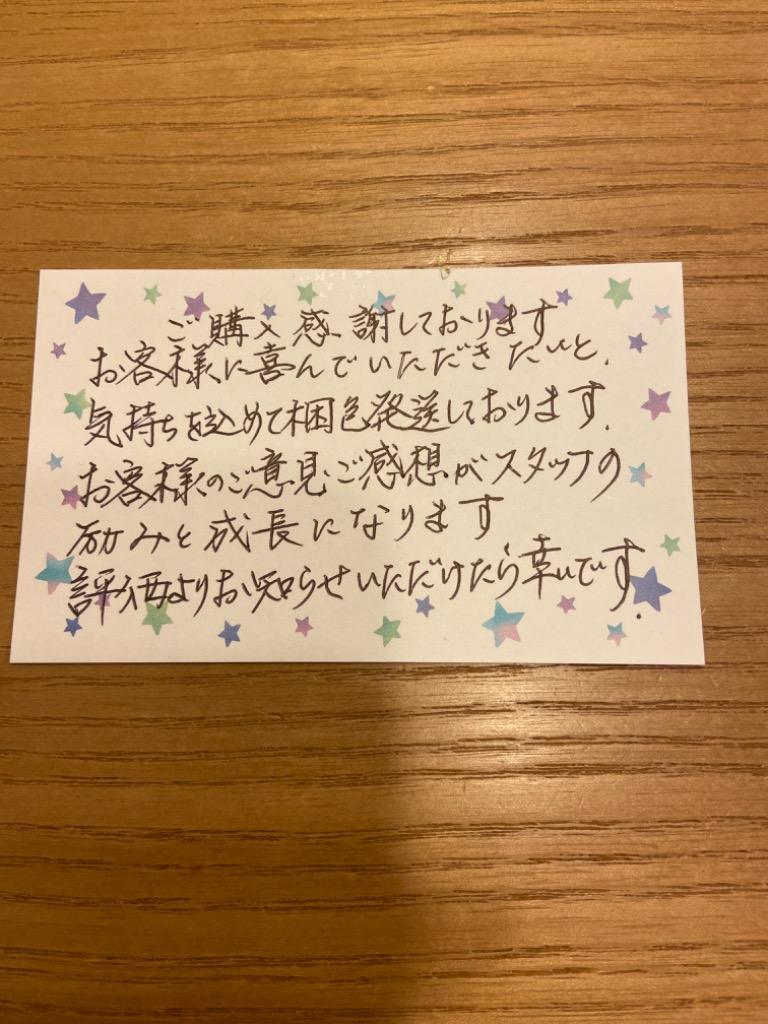 ご購入感謝しております
お客様に喜んでいただきたいと、
気持ちを込めて梱包発送しております。
お客様のご意見ご感想がスタッフの
励みと成長になります
評価よりお知らせいただけたら幸いです。